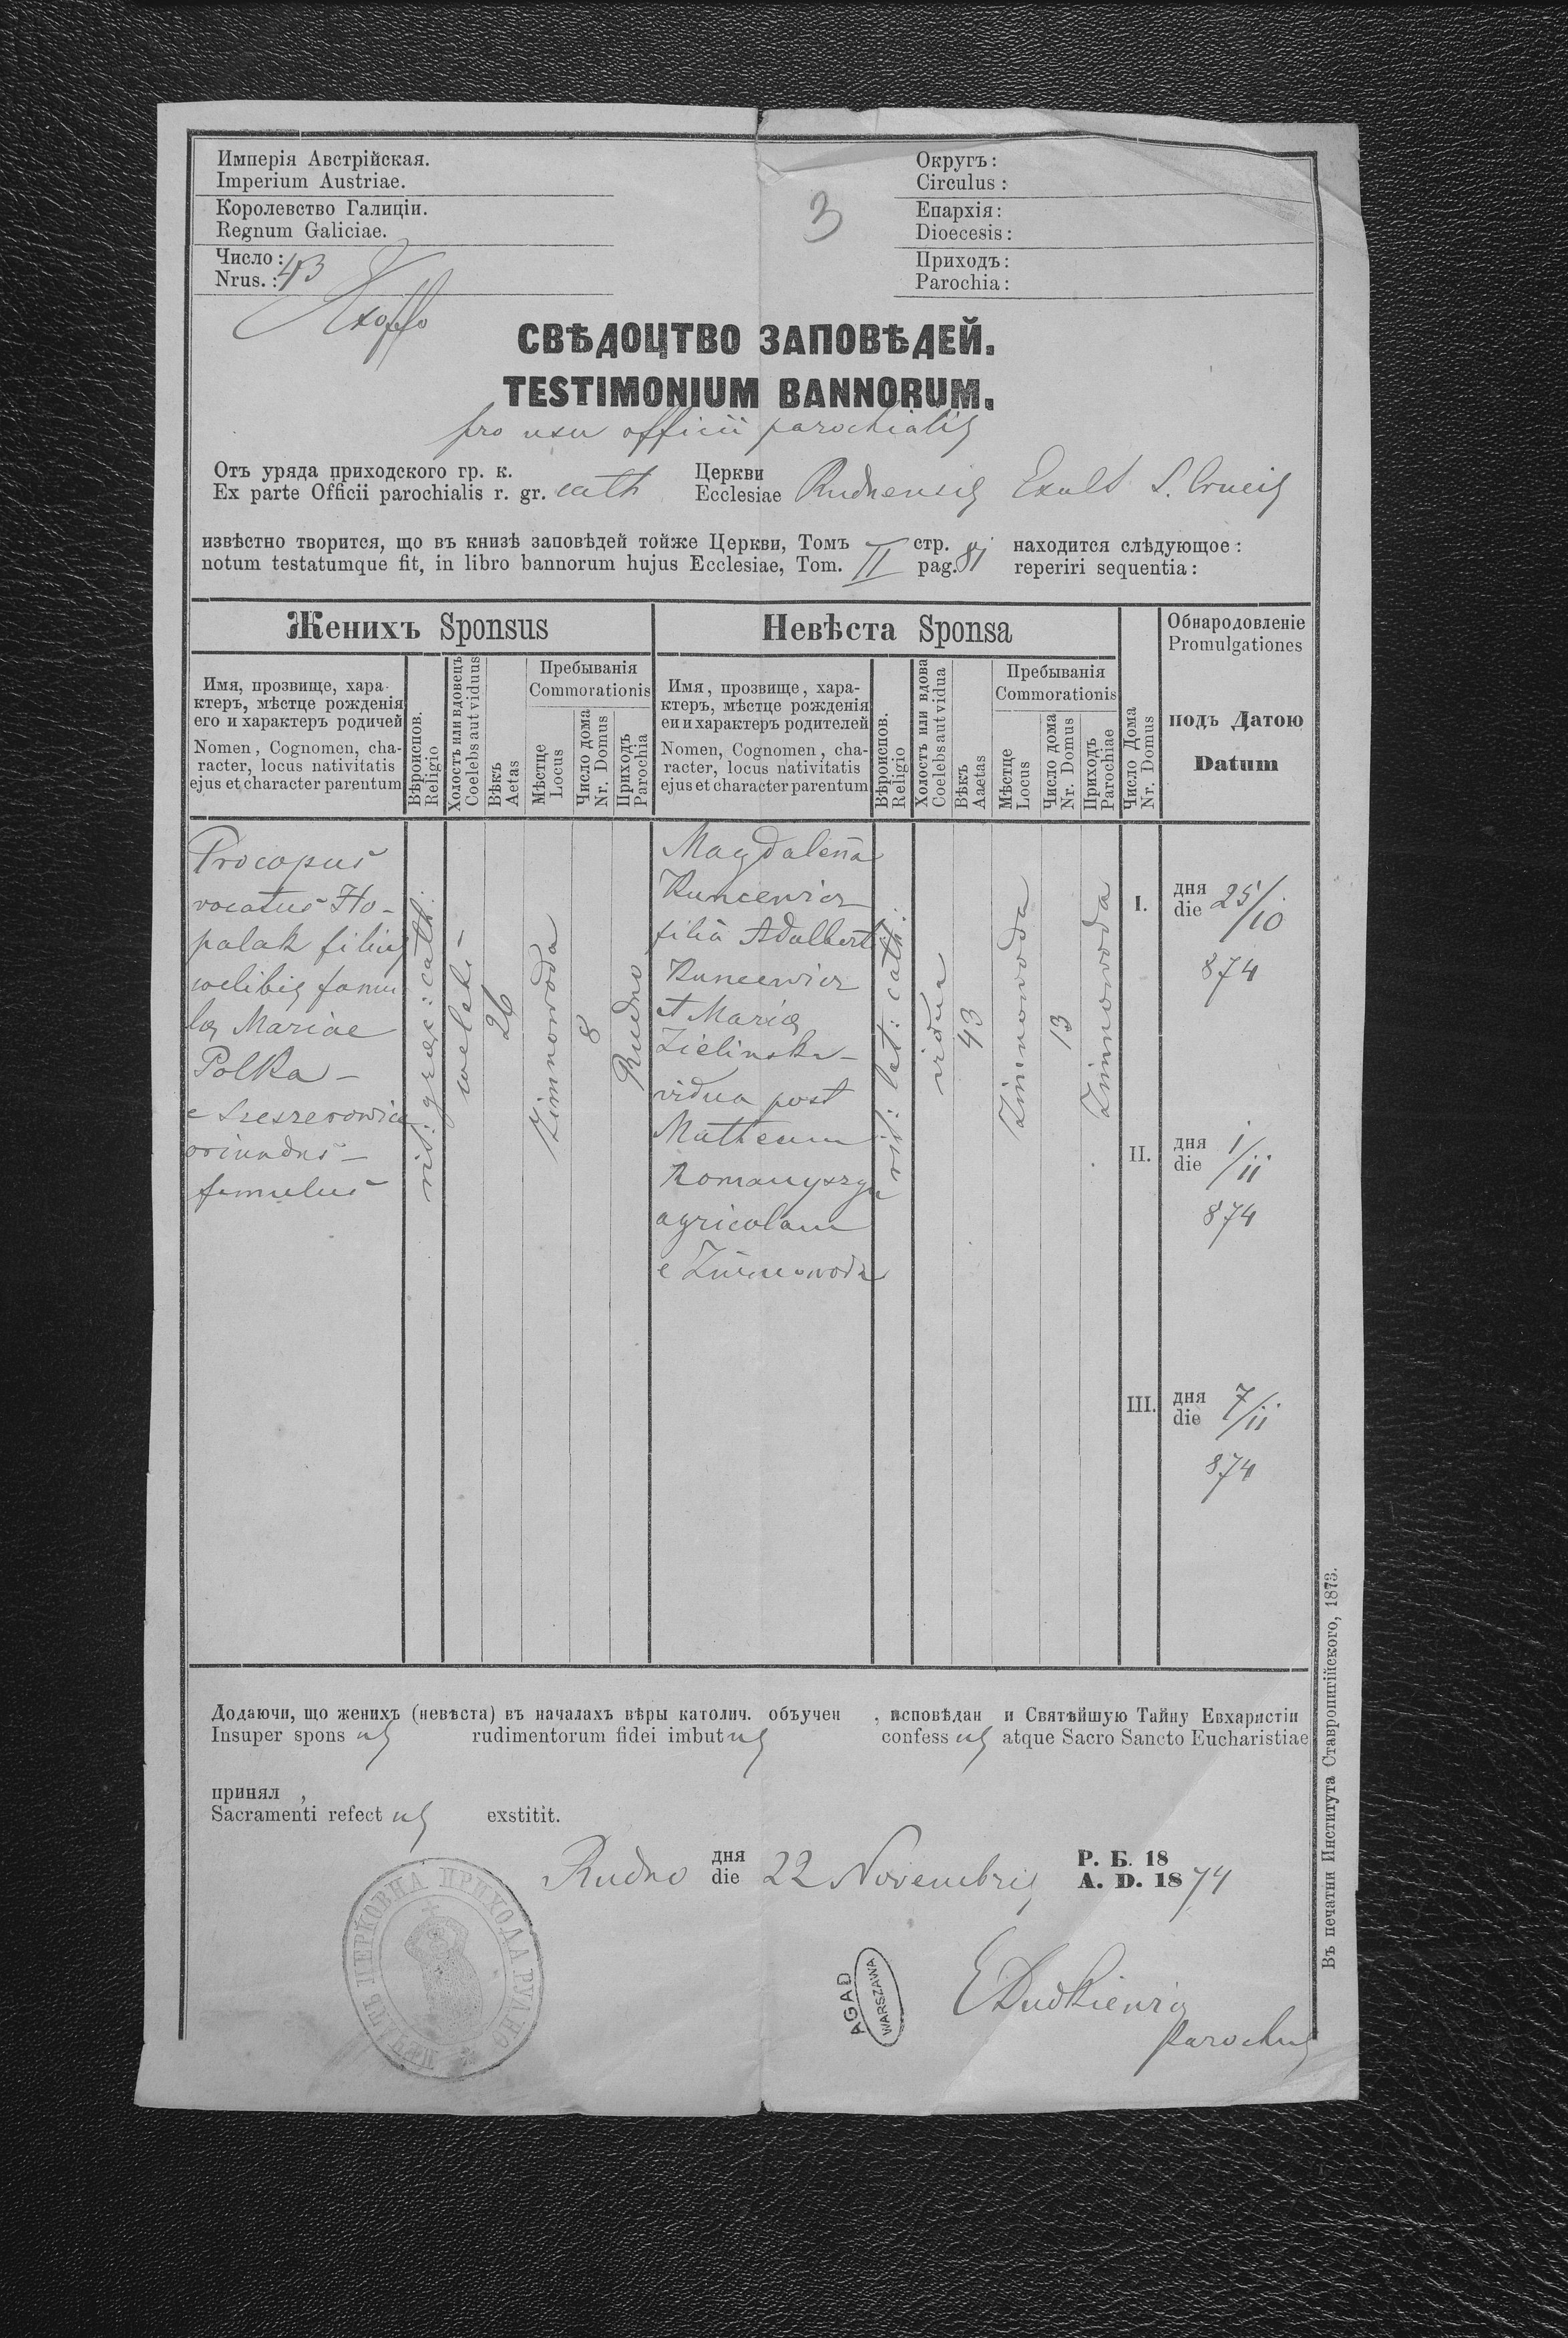 Имперія Австрійская.
Imperium Austriae.
Королевство Галиціи.
Regnum Galiciae.
Число :
Nrus. : 43
3
Округъ :
Circulus :
Епархія :
Dioecesis :
Приходъ :
Parochia :
СВѢДОЦТВО ЗАПОВѢДЕЙ.
TESTIMONIUM BANNORUM.
pro usu officii parochialis
Отъ уряда приходского гр. к. Церкви
Ex parte Officii parochialis r. gr. cath Ecclesiae Rudnensis Exalt S. Crucis
извѣстно творится, що въ книзѣ заповѣдей тойже Церкви, Томъ стр. находится слѣдующое :
notum testatumque fit, in libro bannorum hujus Ecclesiae, Tom. II pag. 81 reperiri sequentia :
Женихъ Sponsus
Имя, прозвище, хара-
ктеръ, мѣстце рожденія
его и характеръ родичей
Nomen, Cognomen, cha-
racter, locus nativitatis
ejus et character parentum
Вѣроиспов.
Religio
Холостъ или вдовецъ
Coelebs aut viduus
Вѣкъ
Aetas
Пребыванія
Commorationis
Мѣстце
Locus
Число дома
Nr. Domus
Приходъ
Parochia
Невѣста Sponsa
Имя, прозвище, хара-
ктеръ, мѣстце рожденія
еи и характеръ родителей
Nomen, Cognomen, cha-
racter, locus nativitatis
ejus et character parentum
Вѣроиспов.
Religio
Холостъ или вдова
Coelebs aut vidua
Вѣкъ
Aaetas
Пребыванія
Commorationis
Мѣстце
Locus
Число дома
Nr. Domus
Приходъ
Parochiae
Число Дома
Nr. Domus
Обнародовленіе
Promulgationes
подъ Датою
Datum
Procopus
vocatus Ho-
palak filius
coelibis famu
lae Mariae
Polka –
e Szeszerowice
oriundus –
famulus
rit: graec: cath:
coelebs
26
Zimnowoda
8
Rudno
Magdalena
Kuncewicz
filia Adalberti
Kuncewicz
et Maria
Zielinska –
vidua post
Matheum
Romanyszyn
agricolam
e Zimnowoda
rit: lat: cath:
vidua
43
Zimnowoda
13
Zimnowoda
I. дня
die 25/10
874
II. дня
die 1/11
874
III. дня
die 7/11
874
Додаючи, що женихъ (невѣста) въ началахъ вѣры католич. объучен , исповѣдан и Святѣйшую Тайну Евхаристіи
Insuper spons us rudimentorum fidei imbut us confess us atque Sacro Sancto Eucharistiae
принял ,
Sacramenti refect us exstitit.
дня Р. Б. 18
Rudno die 22 Novembris A. D. 1874
ПЕЧАТЬ ЦЕРКОВНА ПРИХОДА РУДНО
AGAD
WARSZAWA
EDudkiewicz
parochus
Въ печатни Института Ставропигійского, 1873.